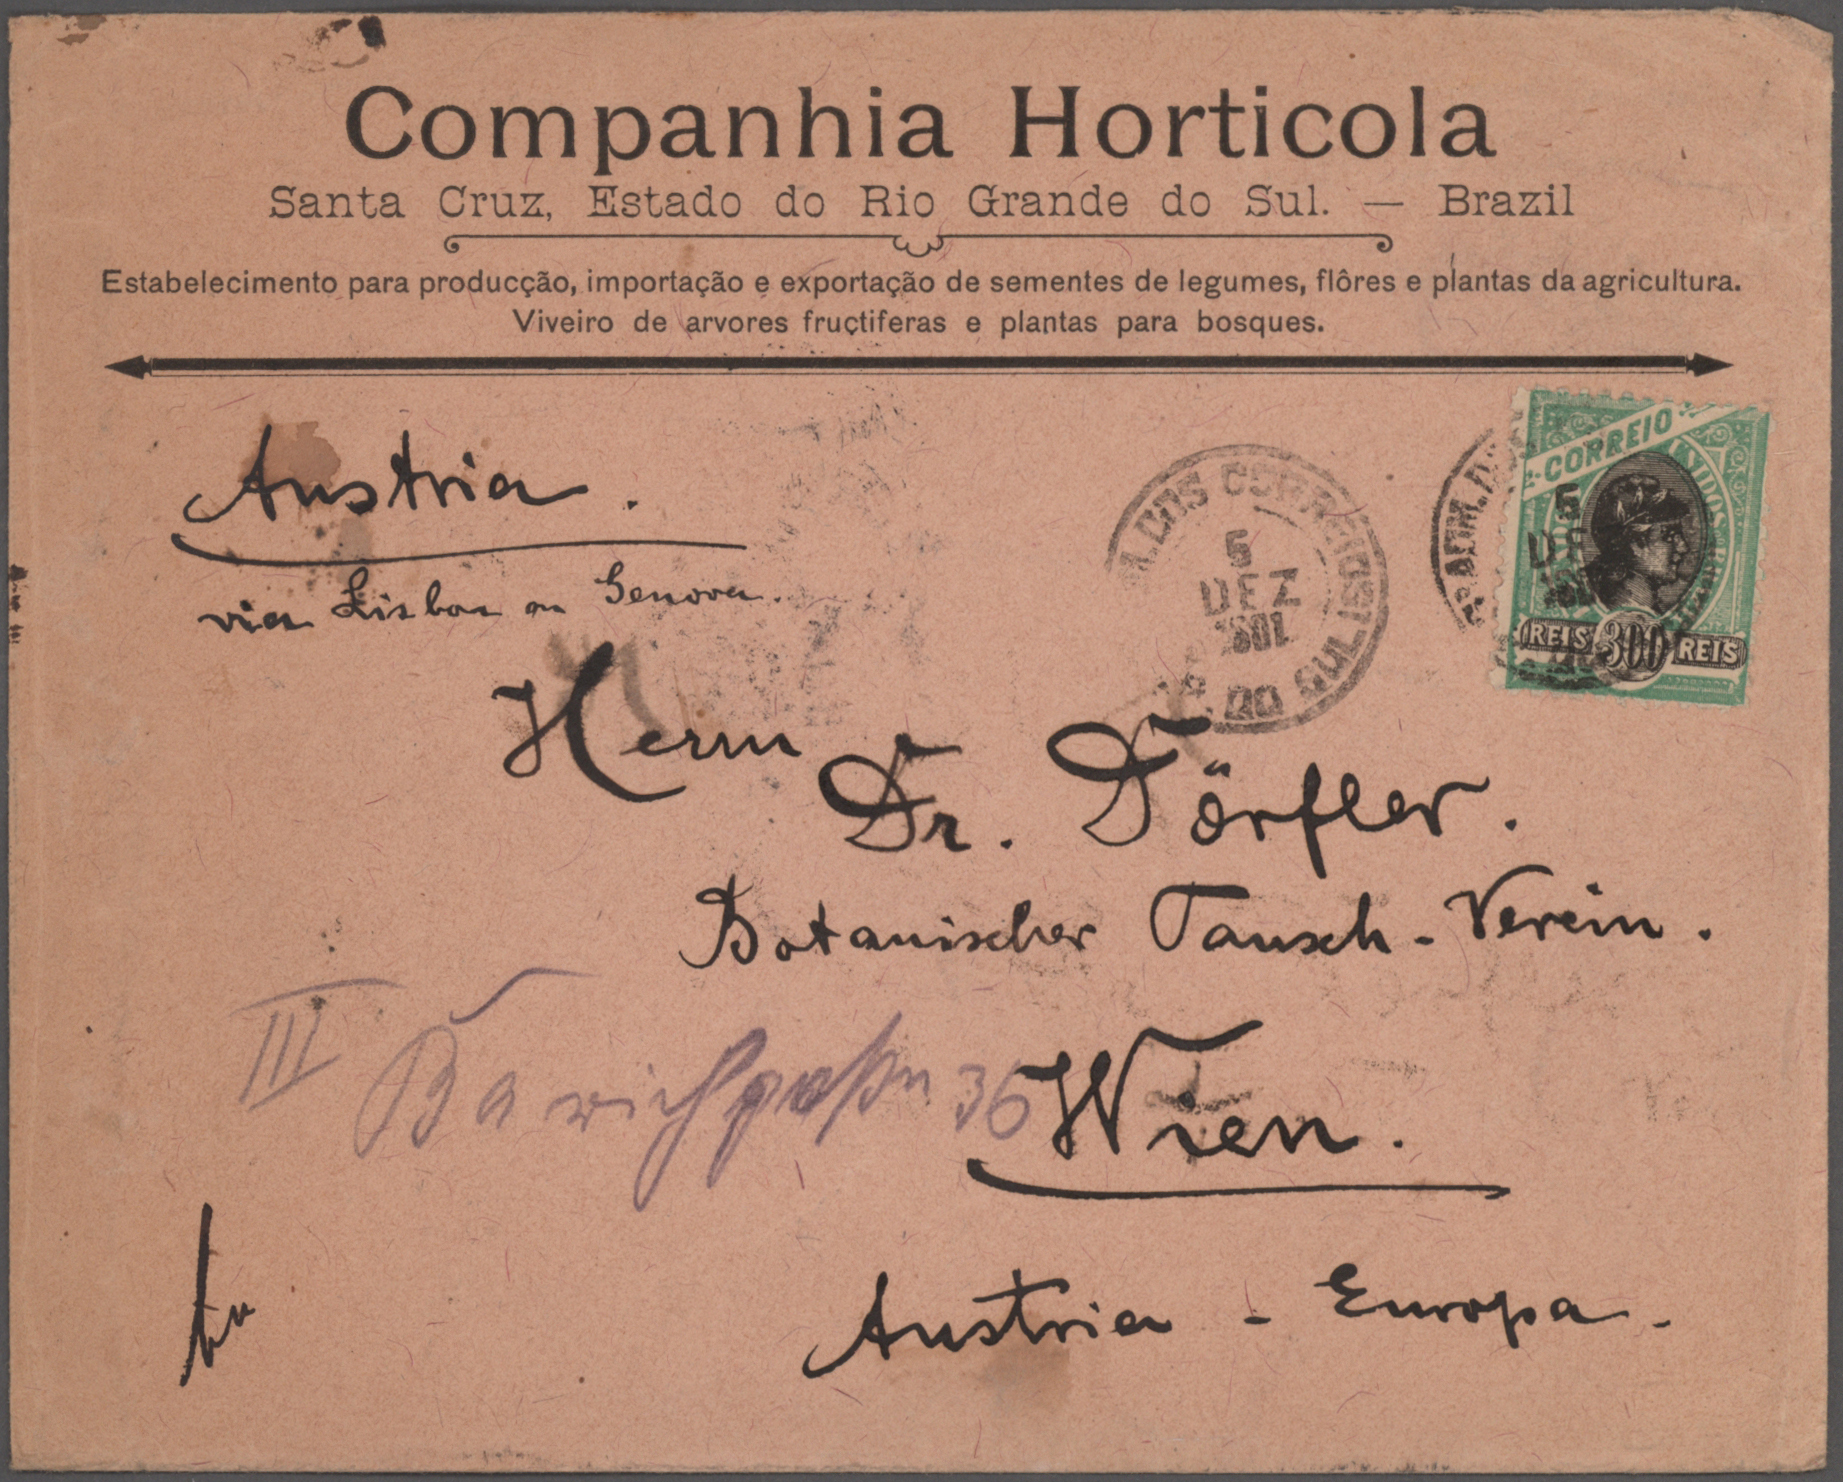 Companhia Horticola
Santa Cruz, Estado do Rio Grande do Sul. — Brazil
Estabelecimento para producção, importação e exportação de sementes de legumes, flôres e plantas da agricultura.
Viveiro de arvores fructiferas e plantas para bosques.
CORREIO
REIS 300 REIS
DOS CORREIOS
5
DEZ
DO SUL
5
Austria.
via Lisboa ou Genova.
Herrn
Dr. Dörfler.
Botanischer Tausch-Verein.
III Barichgasse 36
Wien.
Austria - Europa.